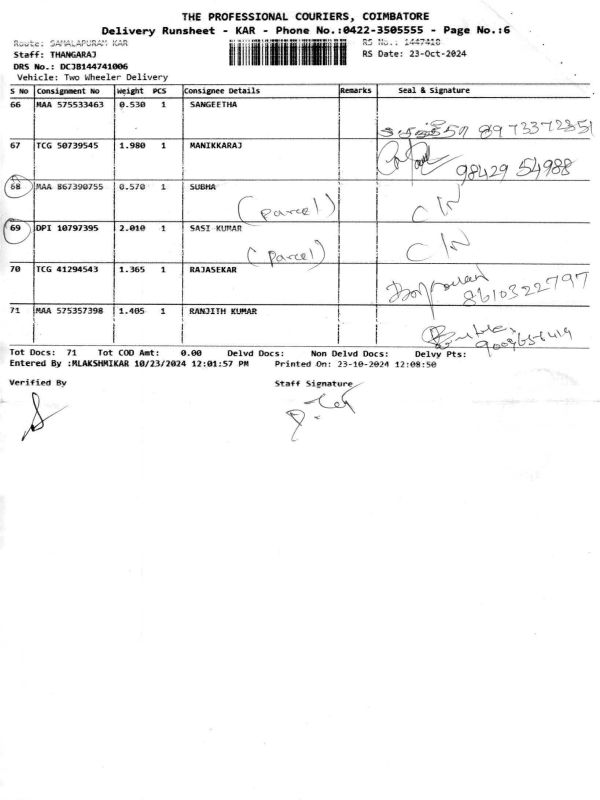 THE PROFESSIONAL COURIERS, COIMBATORE
Delivery Runsheet - KAR - Phone No.:0422-3505555 - Page No.:6
Route: SAMALAPURAM KAR RS No.: 1447410
Staff: THANGARAJ RS Date: 23-Oct-2024
DRS No.: DCJB144741006
Vehicle: Two Wheeler Delivery
S No Consignment No Weight PCS Consignee Details Remarks Seal & Signature
66 MAA 575533463 0.530 1 SANGEETHA
8973372351
67 TCG 50739545 1.980 1 MANIKKARAJ
98429 54988
68 MAA 867390755 0.570 1 SUBHA
(Parcel) C/N
69 DPI 10797395 2.010 1 SASI KUMAR
(Parcel) C/N
70 TCG 41294543 1.365 1 RAJASEKAR
8610322797
71 MAA 575357398 1.405 1 RANJITH KUMAR
Tot Docs: 71 Tot COD Amt: 0.00 Delvd Docs: Non Delvd Docs: Delvy Pts:
Entered By :MLAKSHMIKAR 10/23/2024 12:01:57 PM Printed On: 23-10-2024 12:08:50
Verified By Staff Signature